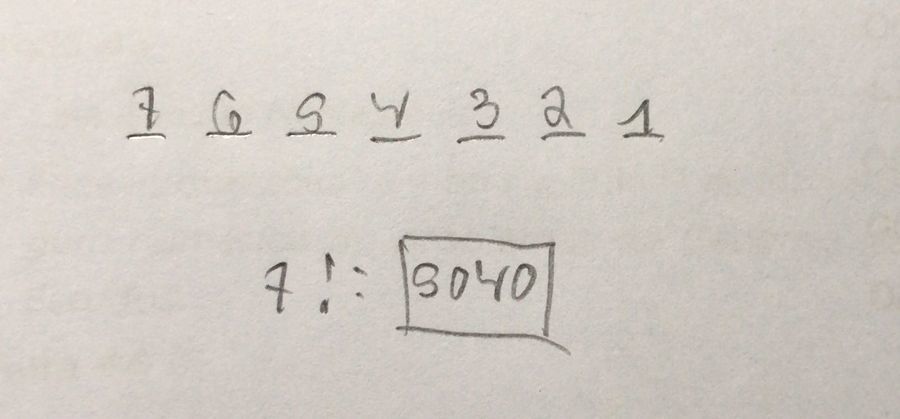 7 6 5 4 3 2 1
7!= 5040